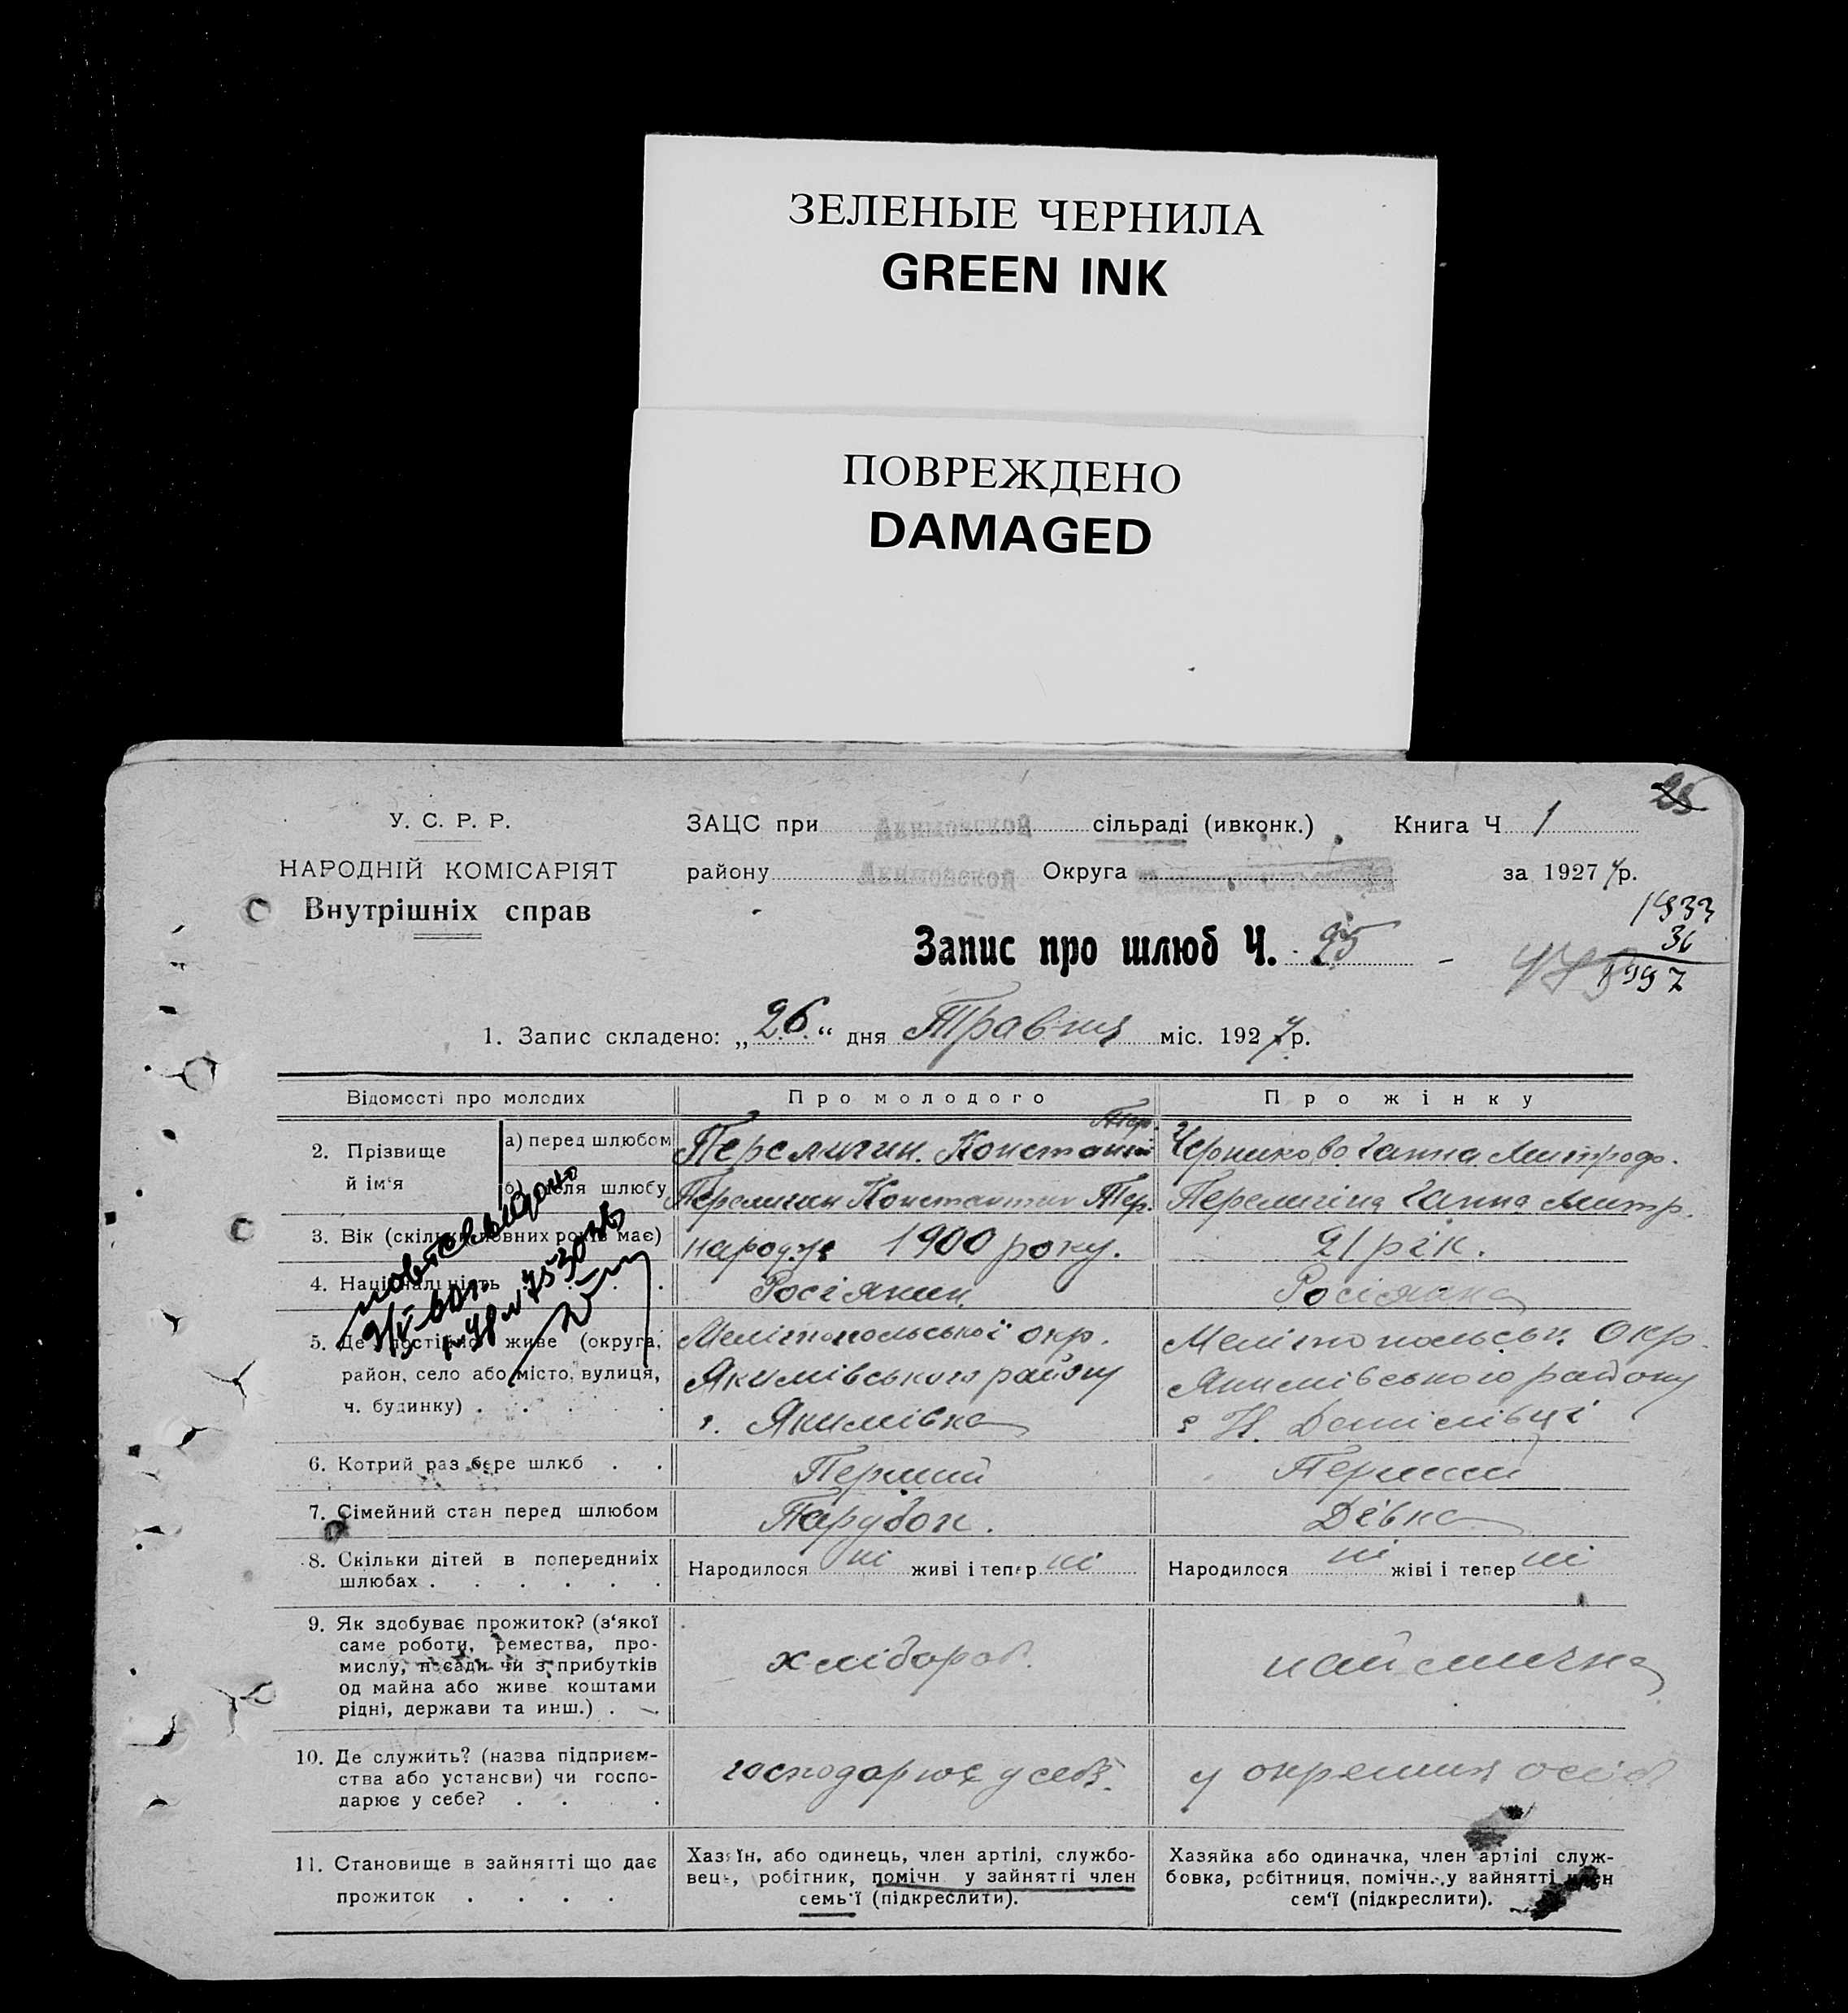 ЗЕЛЕНЫЕ ЧЕРНИЛА
GREEN INK
ПОВРЕЖДЕНО
DAMAGED
25
У. С. Р. Р.
НАРОДНІЙ КОМІСАРІЯТ
Внутрішніх справ
ЗАЦС при Акимовской сільраді (ивконк.) Книга Ч 1
району Акимовской Округа за 1927 р.
1933
36
1997
Запис про шлюб Ч. 25
1. Запис складено: „26“ дня Травня міс. 1927 р.
Відомості про молодих
Про молодого
Про жінку
2. Прізвище й ім‘я
а) перед шлюбом
Перелигин Констант Тер.
Черникова Ганна Митрофо.
б) після шлюбу
Перелигин Константин Тер.
Перелигіна Ганна Митр.
3. Вік (скільки повних років має)
народж 1900 року.
21 рік.
4. Національність
Росіянин
Росіянка
5. Де постійно живе (округа,
район, село або місто, вулиця,
ч. будинку)
Мелітопольської окр.
Якимівського району
с. Якимівка
Мелітопольськ. Окр.
Якимівського району
с Н. Данілівці
6. Котрий раз бере шлюб
Перший
Перший
7. Сімейний стан перед шлюбом
Парубок.
Дівка
8. Скільки дітей в попередниіх
шлюбах
Народилося ні живі і тепер ні
Народилося ні жіві і тепер ні
9. Як здобуває прожиток? (з‘якої
саме роботи, ремества, про-
мислу, посади чи з прибутків
од майна або живе коштами
рідні, держави та инш.)
хлібороб.
наймичка
10. Де служить? (назва підприєм-
ства або установи) чи госпо-
дарює у себе?
господарює у себе.
у окремих осіб
11. Становище в зайнятті що дає
прожиток
Хазяїн, або одинець, член артілі, службо-
вець, робітник, помічн у зайнятті член
семь‘ї (підкреслити).
Хазяйка або одиначка, член артілі служ-
бовка, робітниця, помічн. у зайнятті член
сем‘ї (підкреслити).